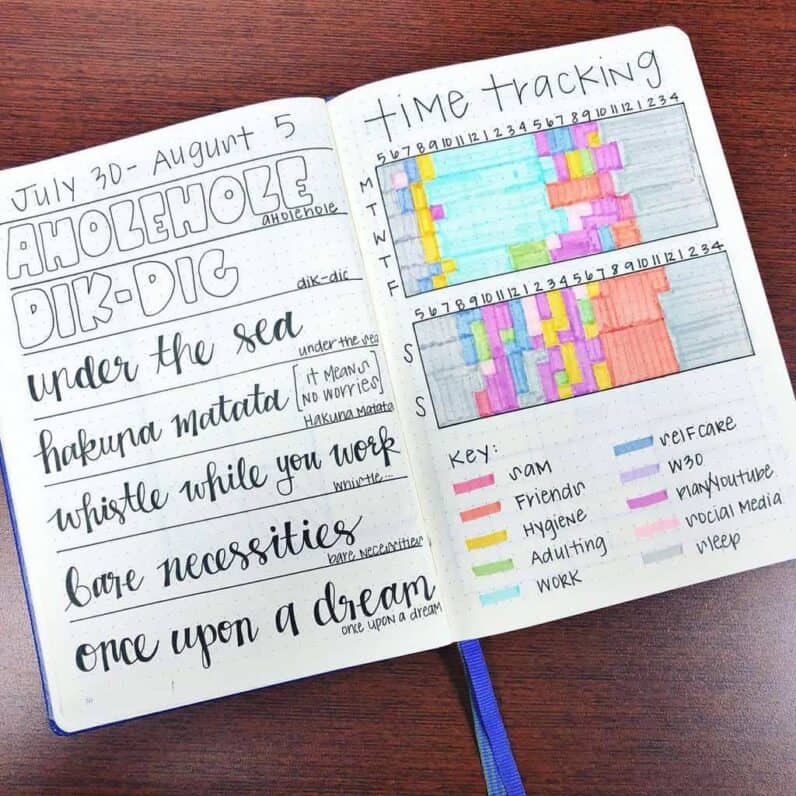 July 30 - August 5
AHOLEHOLE
aholehole
DIK-DIC
dik-dic
under the sea
under the sea
hakuna matata [it means
no worries]
Hakuna Matata
whistle while you work
whistle...
bare necessities
bare necessities
once upon a dream
once upon a dream
time tracking
5 6 7 8 9 10 11 12 1 2 3 4 5 6 7 8 9 10 11 12 1 2 3 4
M
T
W
T
F
5 6 7 8 9 10 11 12 1 2 3 4 5 6 7 8 9 10 11 12 1 2 3 4
S
S
Key:
Sam
Friends
Hygiene
Adulting
Work
Selfcare
W30
Plan/Youtube
Social Media
Sleep